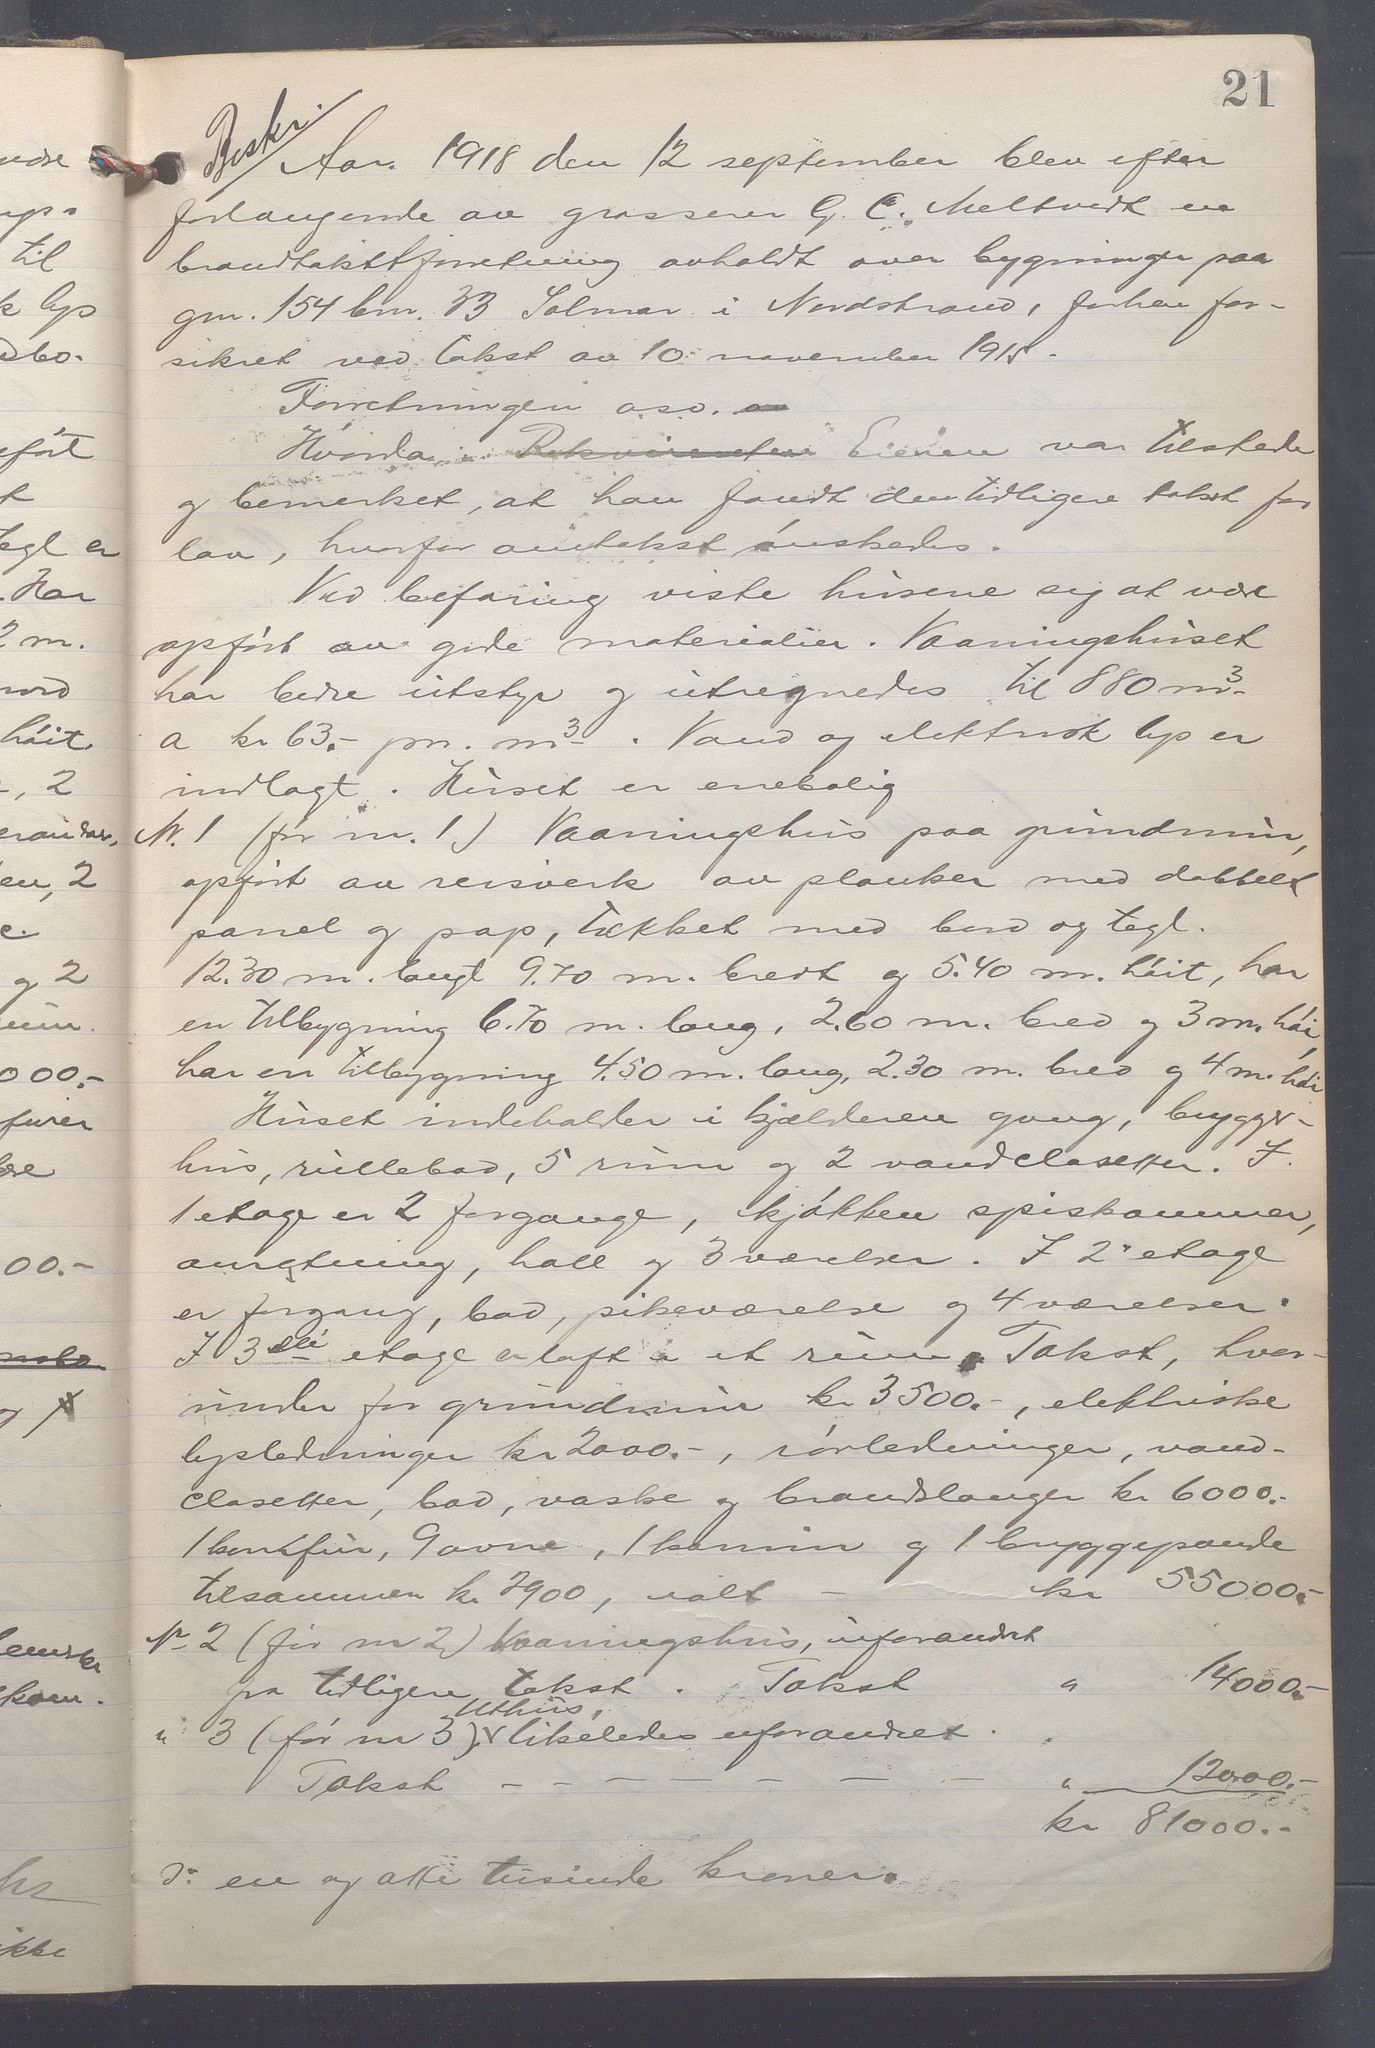 21
Beskr.
Aar. 1918 den 12 september blev efter
forlangende av grosserer G. C. Meltvedt en
brandtakstforretning avholdt over bygninger paa
gnr. 154 bnr. 33 Solmar i Nordstrand, forhen for-
sikret ved takst av 10 november 1915.
Forretningen o.s.v. av
Hvorda Rekvirenten Eieren var tilstede
og bemerket, at han fandt den tidligere takst for
lav, hvorfor omtakst ønskedes.
Ved befaring viste husene sig at være
opført av gode materialier. Vaaningshuset
har bedre utstyr og utregnedes til 880 m³
a kr 63.- pr. m³. Vand og elektrisk lys er
indlagt. Huset er enebolig
Nr. 1 (før nr. 1) Vaaningshus paa grundmur,
opført av reisverk av planker med dobbelt
panel og pap, tækket med bord og tegl.
12.30 m. langt 9.70 m. bredt og 5.40 m. høit, har
en tilbygning 6.70 m. lang, 2.60 m. bred og 3 m. høi,
har en tilbygning 4.50 m. lang, 2.30 m. bred og 4 m. høi
Huset indeholder i kjælderen gang, brygger-
hus, rullebod, 5 rum og 2 vandclosetter. I
1 etage er 2 forgange, kjøkken spiskammer,
anretning, hall og 3 værelser. I 2 etage
er forgang, bad, pikeværelse og 4 værelser.
I 3die etage er loft i et rum. Takst, hver-
under for grundmur kr 3500.-, elektriske
lysledninger kr 2000.-, rørledninger, vand-
closetter, bad, vaske og brandslanger kr 6000.-
1 komfur, 9 ovne, 1 kamin og 1 bryggepande
tilsammen kr 2900, ialt - kr 55000.-
Nr 2 (før nr 2) Vaaningshus, uforandret
fra tidligere takst. Takst " 14000.-
" 3 (før nr 3), Uthus, likeledes uforandret.
Takst - - - - - - - - " 12000.-
kr 81000.-
ɔ: en og otti tusinde kroner.